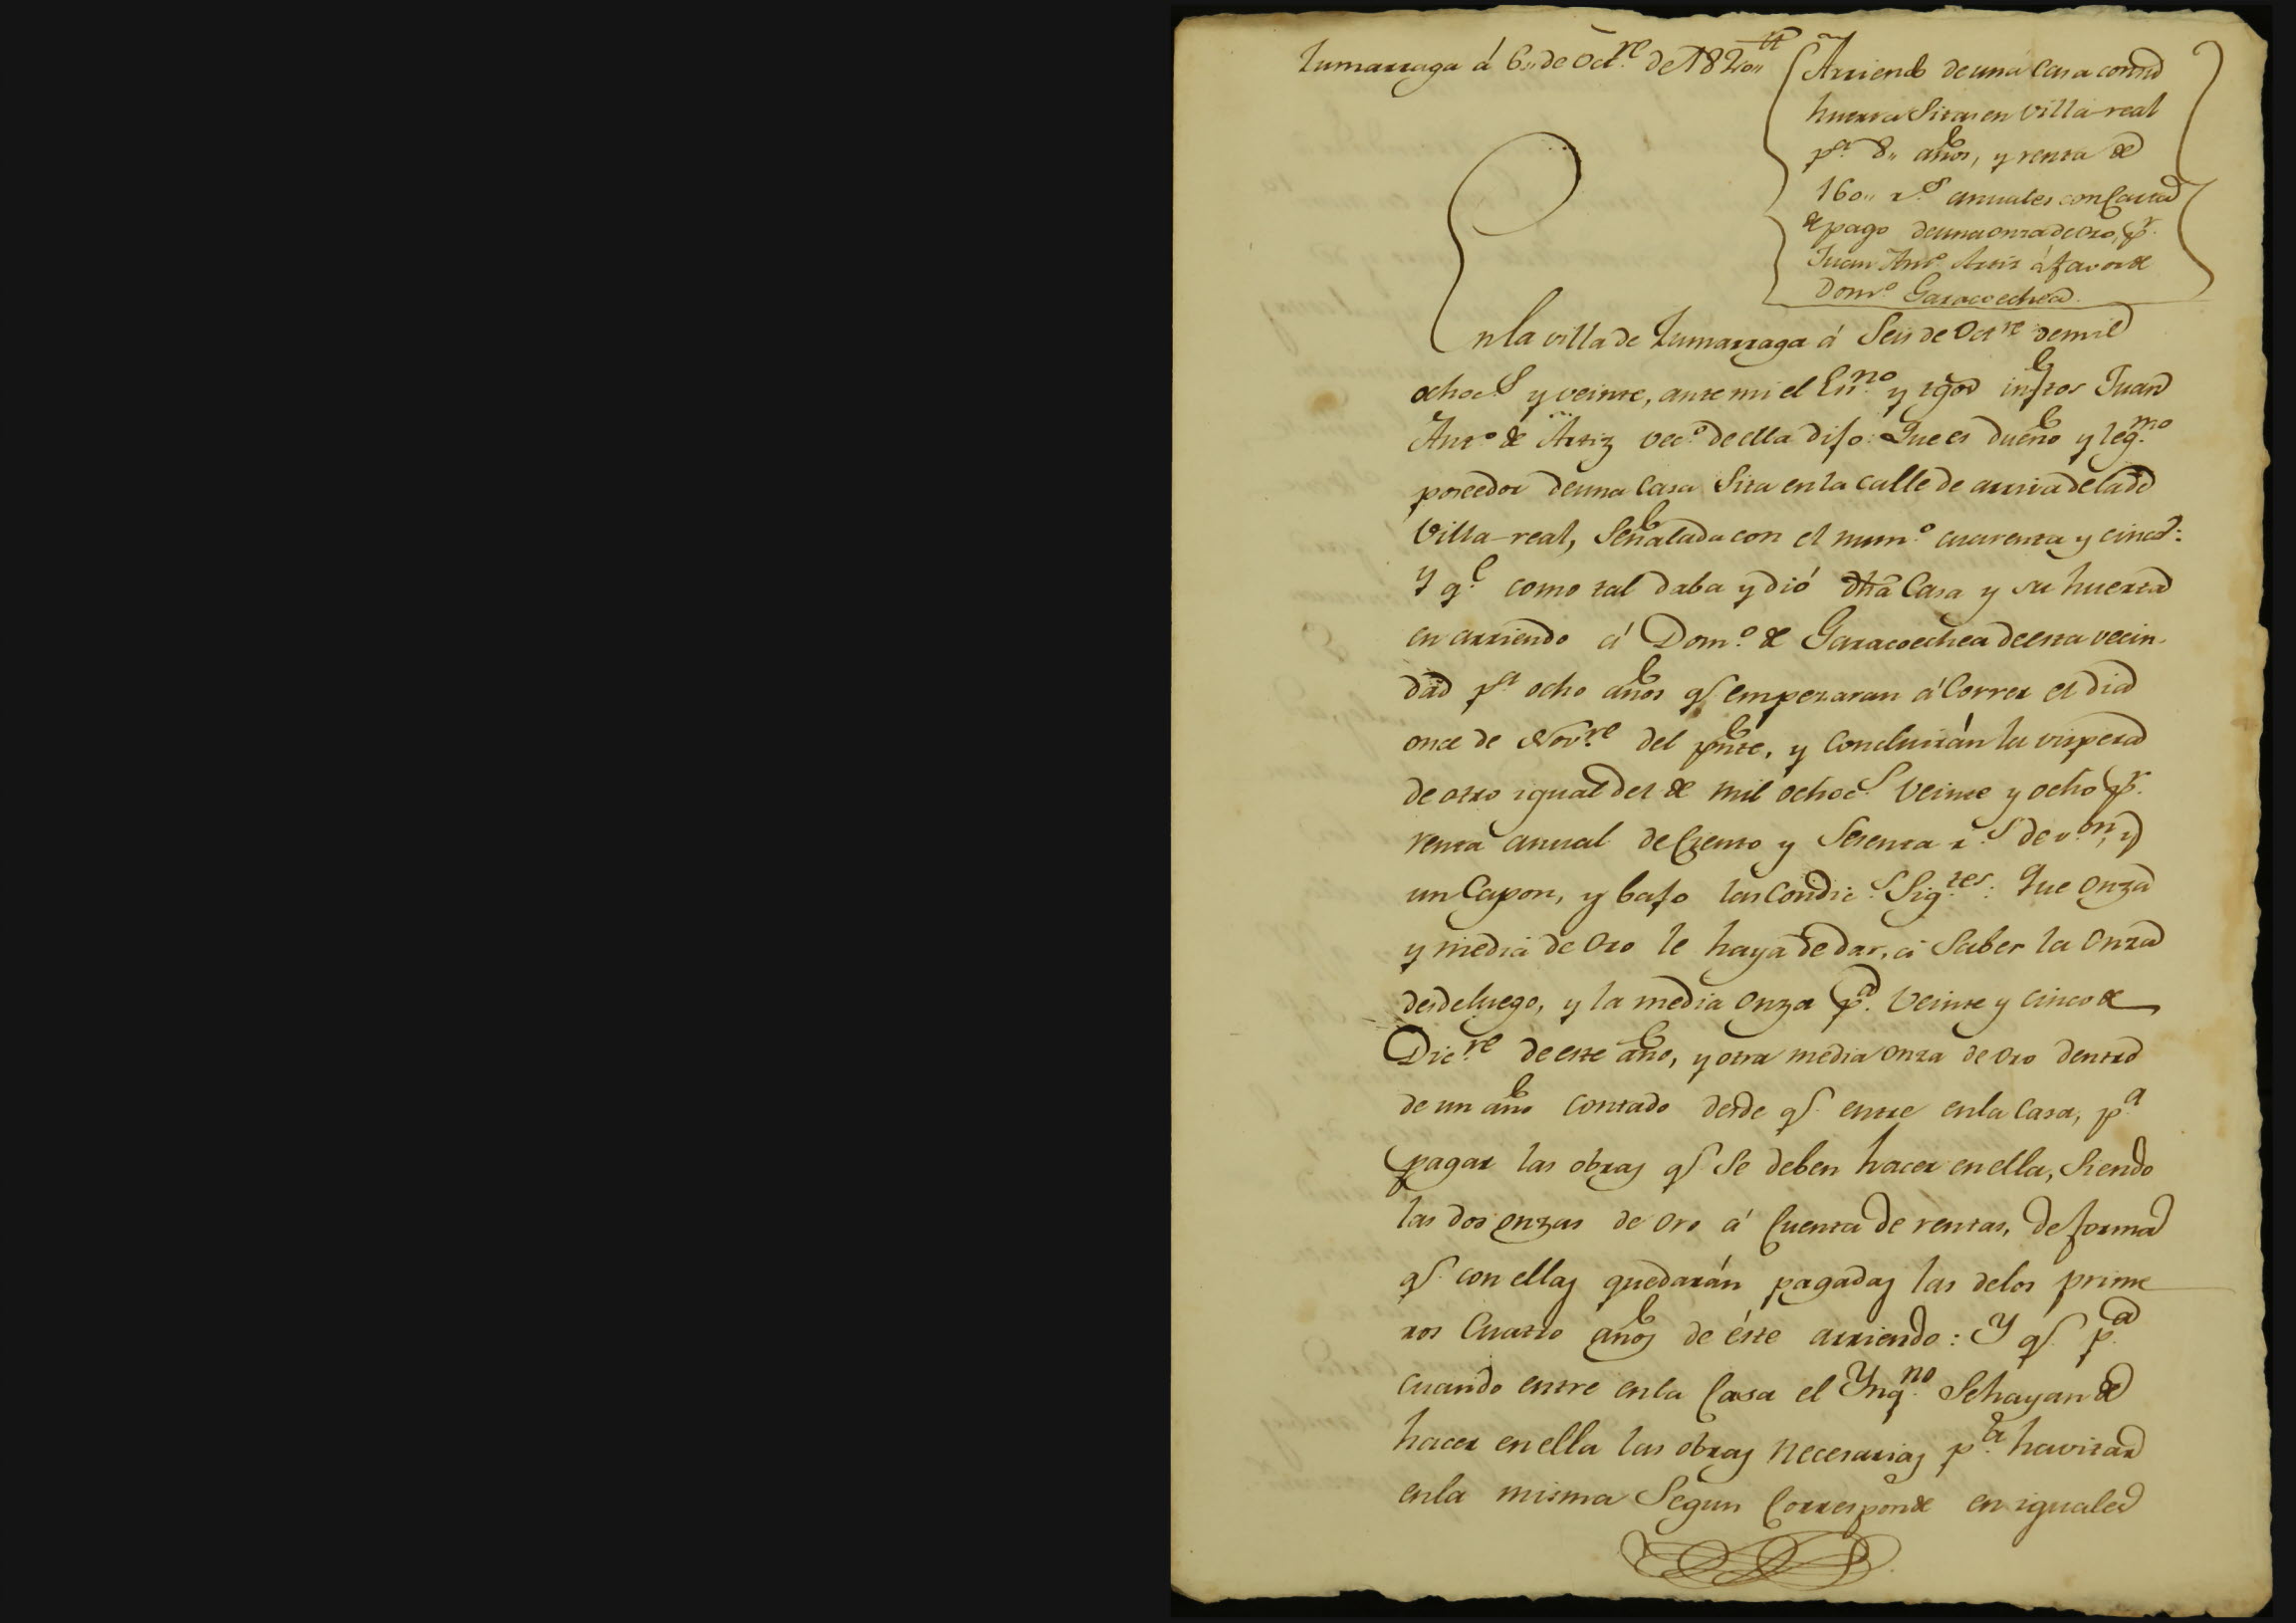 Zumarraga á 6,, de Oct.re de 1820,,
Arriendo de una Casa con su
huerta Sitas en Villa-real
p.a 8,, años, y renta de
160,, r.s anuales con Carta
de pago de una onza de oro, p.r
Juan Ant.o Artiz á favor de
Dom.o Garacoechea.
En la villa de Zumarraga á Seis de Oct.re de mil
ochoc.s y veinte, ante mi el Es.no y tgos infros Juan
Ant.o de Artiz vec.o de ella dijo: Que es dueño y leg.mo
poseedor de una Casa Sita en la calle de arriva de la de
Villa-real, Señalada con el num.o cuarenta y cinco:
Y q.e como tal daba y dió dha Casa y su huerta
en arriendo á Dom.o de Garacoechea de esta vecin-
dad p.a ocho años q.e empezaran á Correr el dia
once de Nov.re del pnte, y Concluirán la vispera
de otro igual del de mil ochoc.s Veinte y ocho p.r
renta anual de Ciento y Sesenta r.s de v.on, y
un Capon, y bajo las Condic.s Sig.tes: Que Onza
y media de Oro le haya de dar, á Saber la Onza
desde luego, y la media Onza p.a Veinte y cinco de
Dic.re de este año, y otra media onza de Oro dentro
de un año Contado desde q.e entre en la Casa, p.a
pagar las obras q.e Se deben hacer en ella, Siendo
las dos onzas de Oro á Cuenta de rentas, de forma
q.e con ellas quedarán pagadas las de los prime
ros Cuatro años de éste arriendo: Y q.e p.a
cuando entre en la Casa el Ynq.no Se hayan de
hacer en ella las obras Necesarias p.a havitar
en la misma Segun Corresponde en iguales